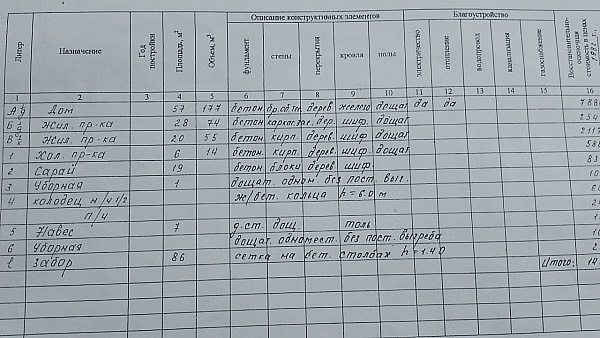 Описание конструктивных элементов Благоустройство
Литер Назначение Год постройки Площадь, м² Объем, м³ фундамент стены перекрытия кровля полы электричество отопление водопровод канализация газоснабжение Восстановительно-оценочная стоимость в ценах
1 2 3 4 5 6 7 8 9 10 11 12 13 14 15 16
Дом 57 177 бетон дерев железо дощат да да
Жил. пр-ка 28 74 бетон дер. шиф. дощат
Жил. пр-ка 20 55 бетон кирп. дерев. шиф. дощат
1 Хол. пр-ка 6 14 бетон. кирп. дерев. шиф. дощат
2 Сарай 19 бетон блоки дерев шиф.
3 Уборная 1 дощат. одном. без пост. выг.
4 колодец ж/бет. кольца h = 6.0 м
п/ч
5 Навес 7 д.ст. дощ. толь
6 Уборная дощат. одномест. без пост. выгреба
Забор 86 сетка на бет. столбах h = 1.40
Итого: 14